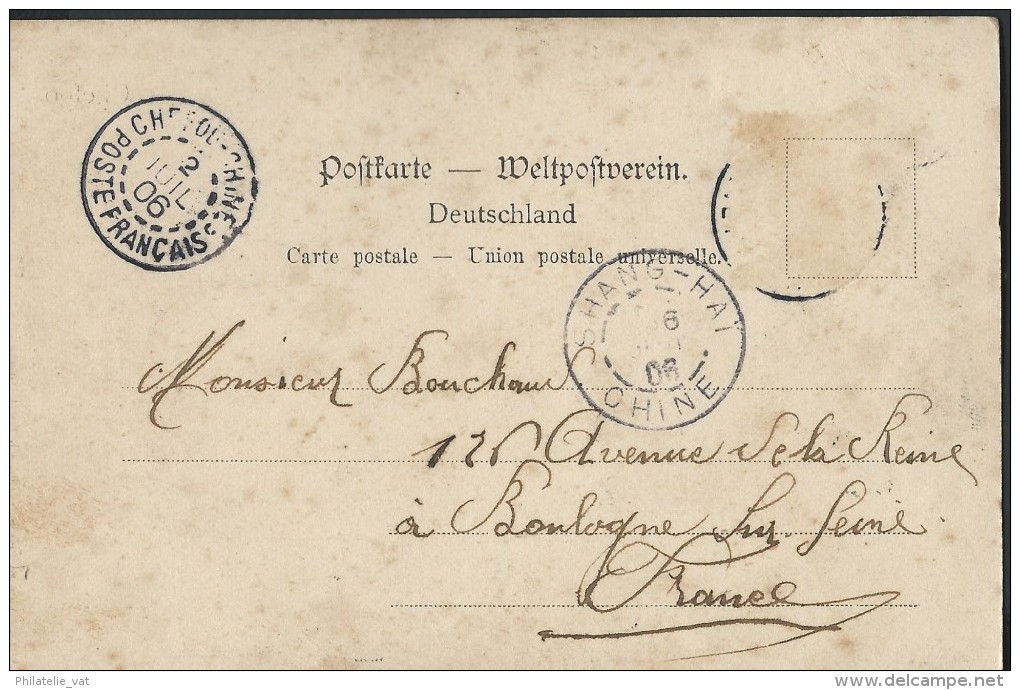 CHEFOU-CHINE
2
JUIL
06
POSTE FRANÇAISE
Postkarte — Weltpostverein.
Deutschland
Carte postale — Union postale universelle.
SHANG-HAÏ
6
06
CHINE
Monsieur
126 Avenue de la Reine
à Boulogne Sur Seine
France
Philatelie_vat
delcampe.net